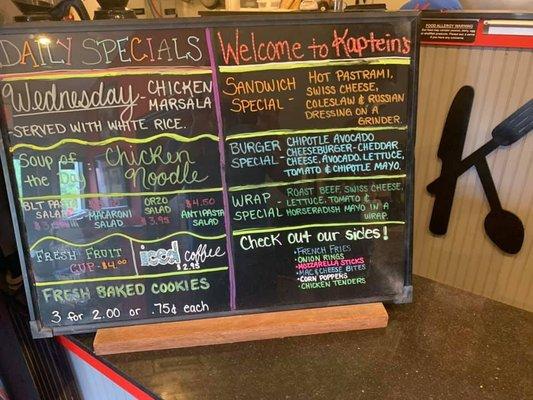 DAILY SPECIALS
Wednesday - CHICKEN
MARSALA
SERVED WITH WHITE RICE.
SOUP OF
the DAY
Chicken
Noodle
BLT PASTA
SALAD
MACARONI
SALAD
$3.95
ORZO
SALAD
$4.50
ANTIPASTA
SALAD
FRESH FRUIT
CUP - $4.00
iced coffee
$2.95
FRESH BAKED COOKIES
3 for 2.00 or .75¢ each
Welcome to Kaptein's
SANDWICH
SPECIAL -
HOT PASTRAMI,
SWISS CHEESE,
COLESLAW & RUSSIAN
DRESSING ON A
GRINDER.
BURGER
SPECIAL -
CHIPOTLE AVOCADO
CHEESEBURGER - CHEDDAR
CHEESE, AVOCADO, LETTUCE,
TOMATO & CHIPOTLE MAYO.
WRAP -
SPECIAL
ROAST BEEF, SWISS CHEESE,
LETTUCE, TOMATO &
HORSERADISH MAYO IN A
WRAP.
Check out our sides!
•FRENCH FRIES
•ONION RINGS
•MOZZARELLA STICKS
•MAC & CHEESE BITES
•CORN POPPERS
•CHICKEN TENDERS
FOOD ALLERGY WARNING!